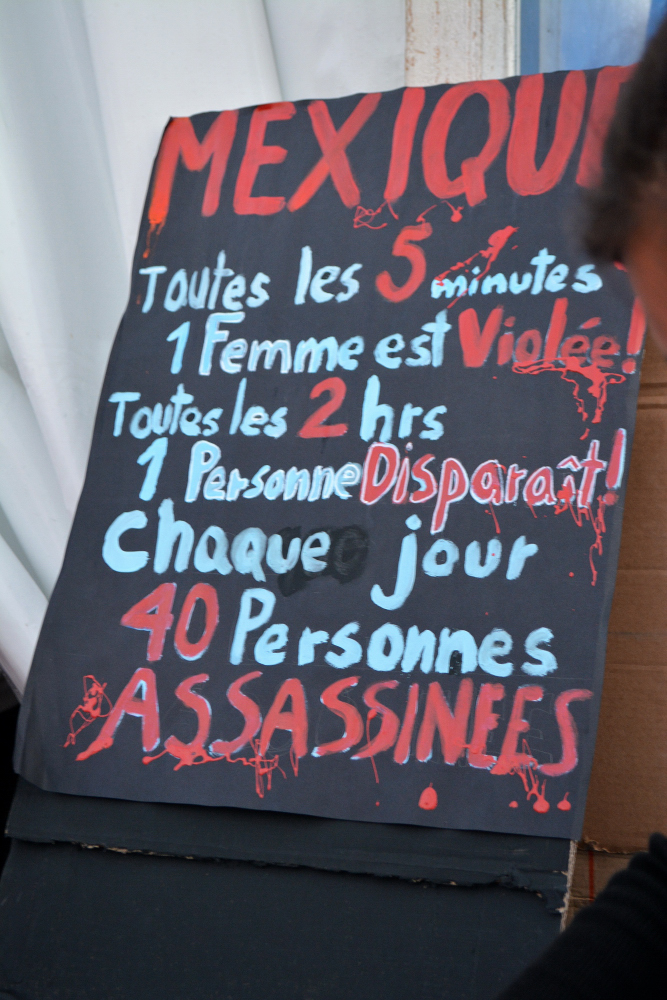 MEXIQUE
Toutes les 5 minutes
1 Femme est Violée!
Toutes les 2 hrs
1 Personne Disparaît!
chaque jour
40 Personnes
ASSASSINEES